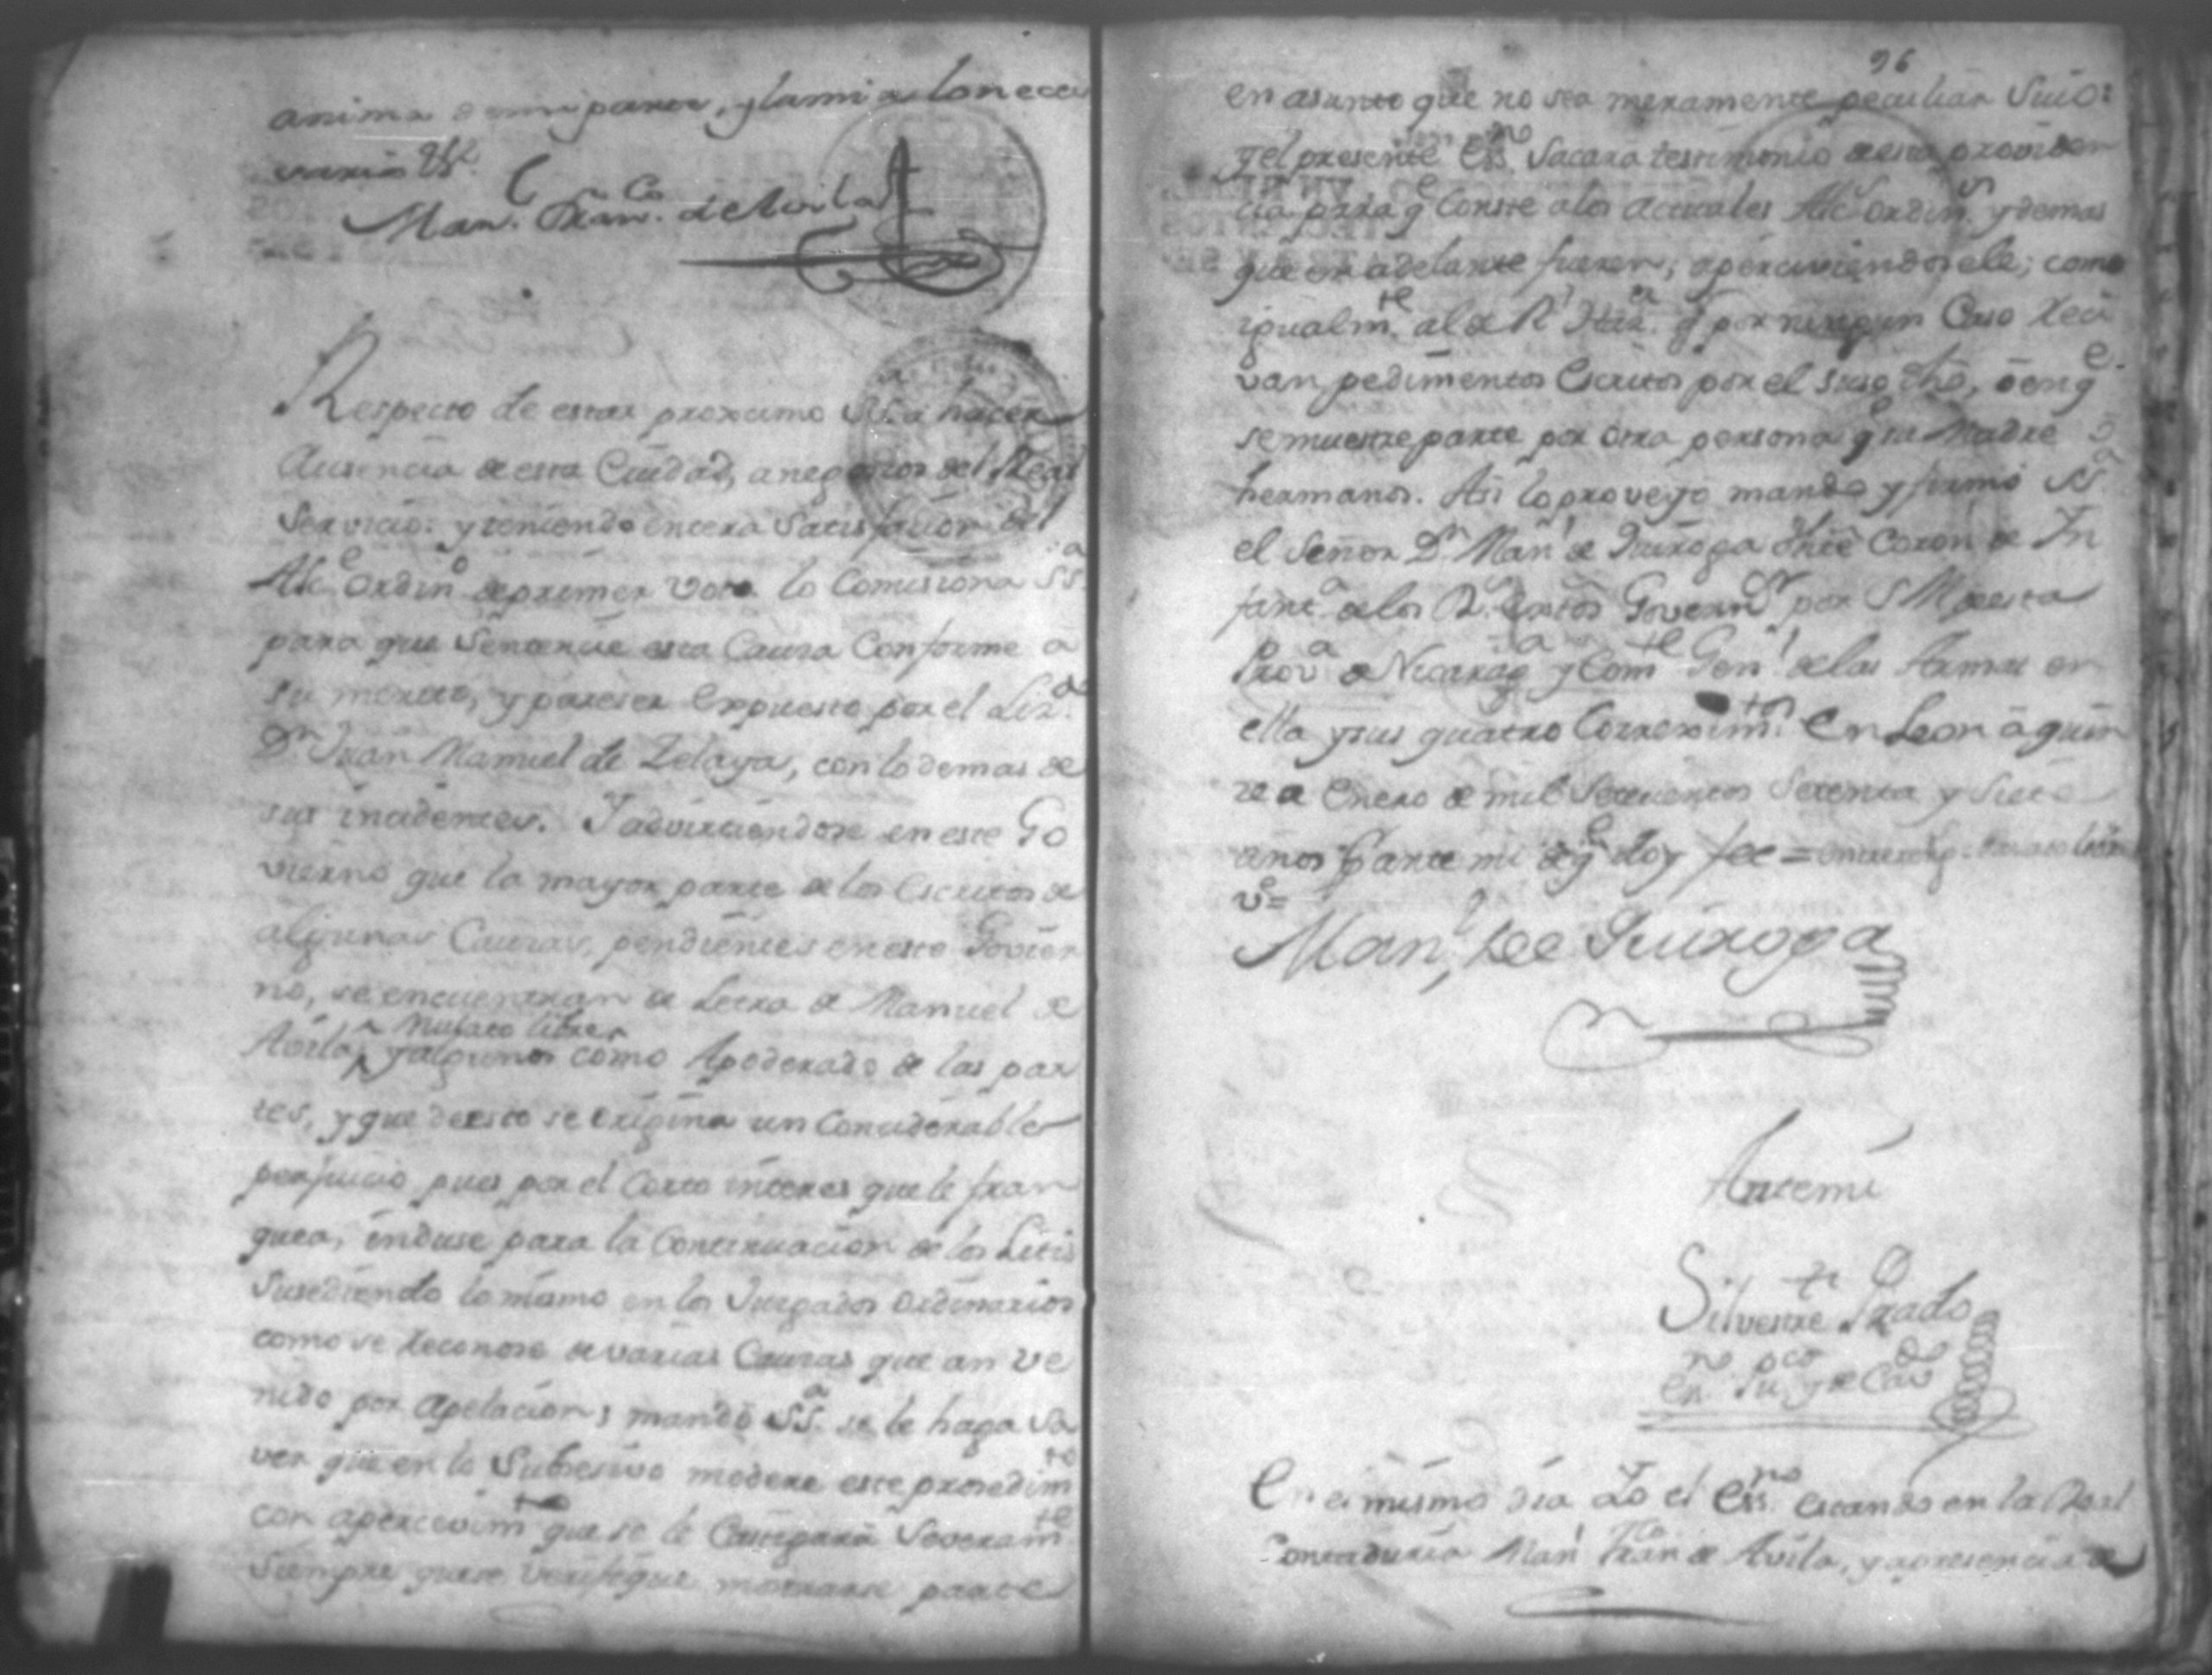 anima de mi parte, y la mia lo nece
sario &.
Man.l Fran.co de Avila
Respecto de estar proximo SS.a a hacer
Ausencia de esta Ciudad, a negocios del Real
Servicio: y teniendo entera Satisfacion del
Alc.e Ordin.o de primer voto lo Comisiona SS.a
para que Sentencie esta Causa Conforme a
su merito, y pareser expuesto por el Liz.do
D.n Juan Manuel de Zelaya, con lo demas de
sus incidentes. Y advirtiendose en este Go
vierno que la mayor parte de los Escritos de
algunas Causas, pendientes en este Govier
no, se encuentran de Letra de Manuel de
mulato libre
Avila, y algunos como Apoderado de las par
tes, y que de esto se origina un Considerable
perjuicio pues por el Corto interes que le fran
quea, induse para la Continuacion de los Litis
Susediendo lo mismo en los Juzgados Ordinarios
como se reconose de varias Causas que an ve
nido por Apelacion; mando SS.a se le haga sa
ver que en lo Subsesivo modere este prosedim.to
con apercevim.to que se le Castigará Severam.te
Siempre que se verifique mostrarse parte
96
en asunto que no sea meramente peculiar Suio:
y el presente Ess.no Sacara testimonio de esta providen
cia para q.e Conste a los actuales Alc.s Ordin.s y demas
que en adelante fueren; aperciviendosele; como
igualm.te al de R.l Haz.a q.e por ningun Caso reci
van pedimentos Escritos por el suso dho, ó en q.e
se muestre parte por otra persona q.e su Madre ó
hermanos. Asi lo proveyó mandó y firmó SS.a
el Señor D.n Man.l de Quiroga Thte Coron.l de In
fant.a de los R.s Extos Govern.or por S M de esta
Prov.a de Nicarag.a y Com.te Gen.l de las Armas en
ella y sus quatro Correxim.tos En Leon á quin
ze de Enero de mil Setecientos Setenta y Siete
años P. ante mi de q.e doy fee = entre rreng.s mulato libre
v.e =
Man.l de Quiroga
Ante mi
Silvestre Prado
En el mismo dia Yo el Ess.no estando en la Real
Contaduria Man.l Fran.co de Avila, y a presencia de